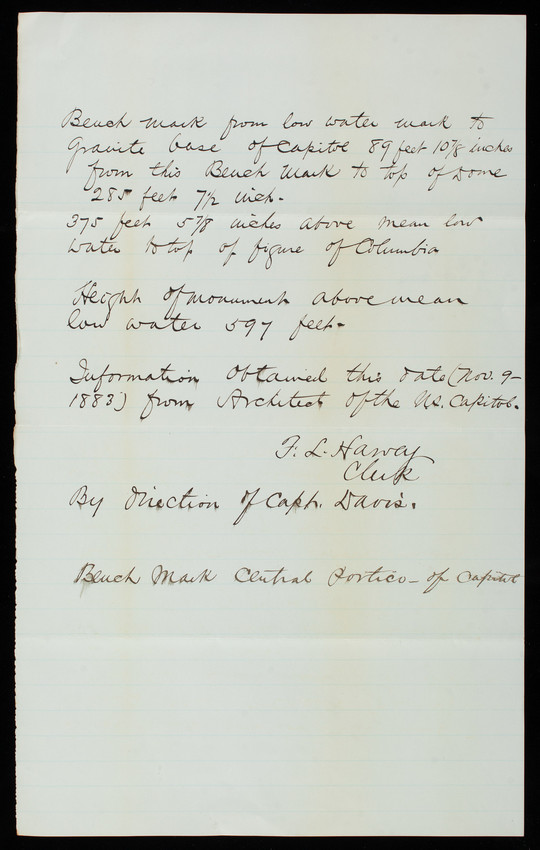 Bench mark from low water mark to
Granite base of Capitol 89 feet 10 7/8 inches
from this Bench Mark to top of Dome
285 feet 7 1/2 inch.
375 feet 5 7/8 inches above mean low
water to top of figure of Columbia
Height of monument above mean
low water 597 feet.
Information obtained this date (Nov. 9-
1883) from Architect of the U.S. Capitol.
F. L. Harvey
Clerk
By direction of Capt. Davis.
Bench Mark Central Portico - of Capitol